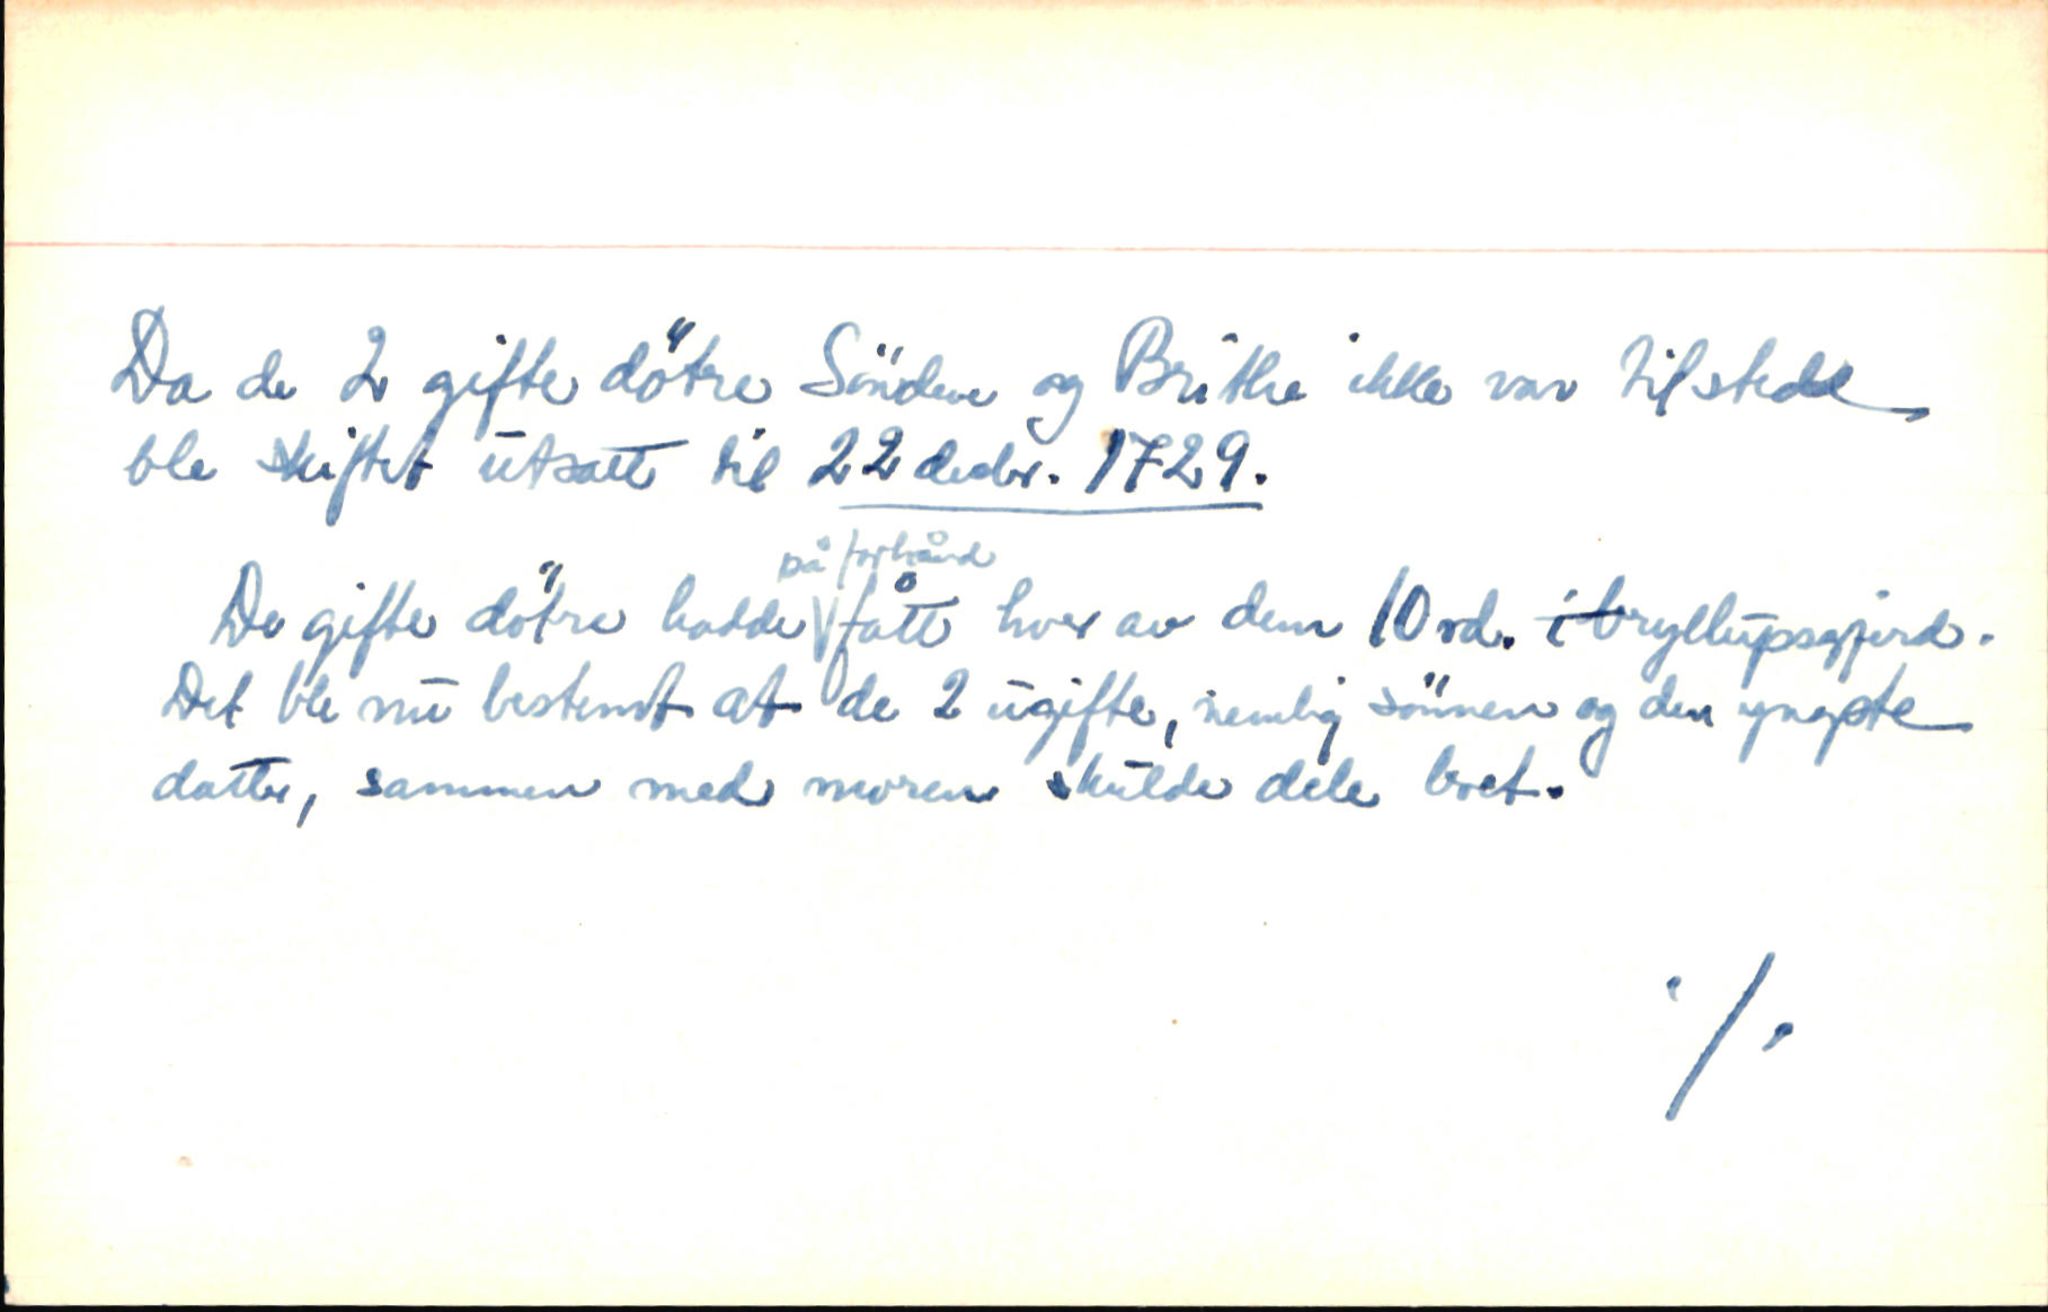 Da de 2 gifte dötre Sönneve og Brithe ikke var tilstede
ble skiftet utsatt til 22 decbr. 1729.
på forhånd
De gifte dötre hadde fått hver av dem 10 rd. i bryllupsgjerd.
Det ble nu bestemt at de 2 ugifte, nemlig sönnen og den yngste
datter, sammen med moren skulde dele boet.
./.